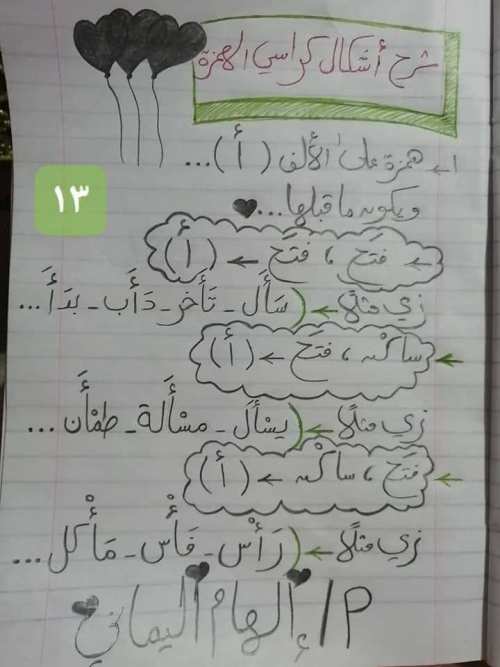 شرح أشكال كراسي الهمزة
١- همزة على الألف (أ)...
١٣
ويكون ما قبلها...
فتَح ، فتَح ← (أ)
زي مثلًا ← (سَأَل - تَأَخر - دَأَب - بدَأَ...
ساكن ، فتَح ← (أ)
زي مثلًا ← (يسْأَل - مسْأَلة - طمْأَن...
فتَح ، ساكن ← (أ)
زي مثلًا ← (رَأْس - فَأْس - مَأْكل...
م/ إلهام اليماني